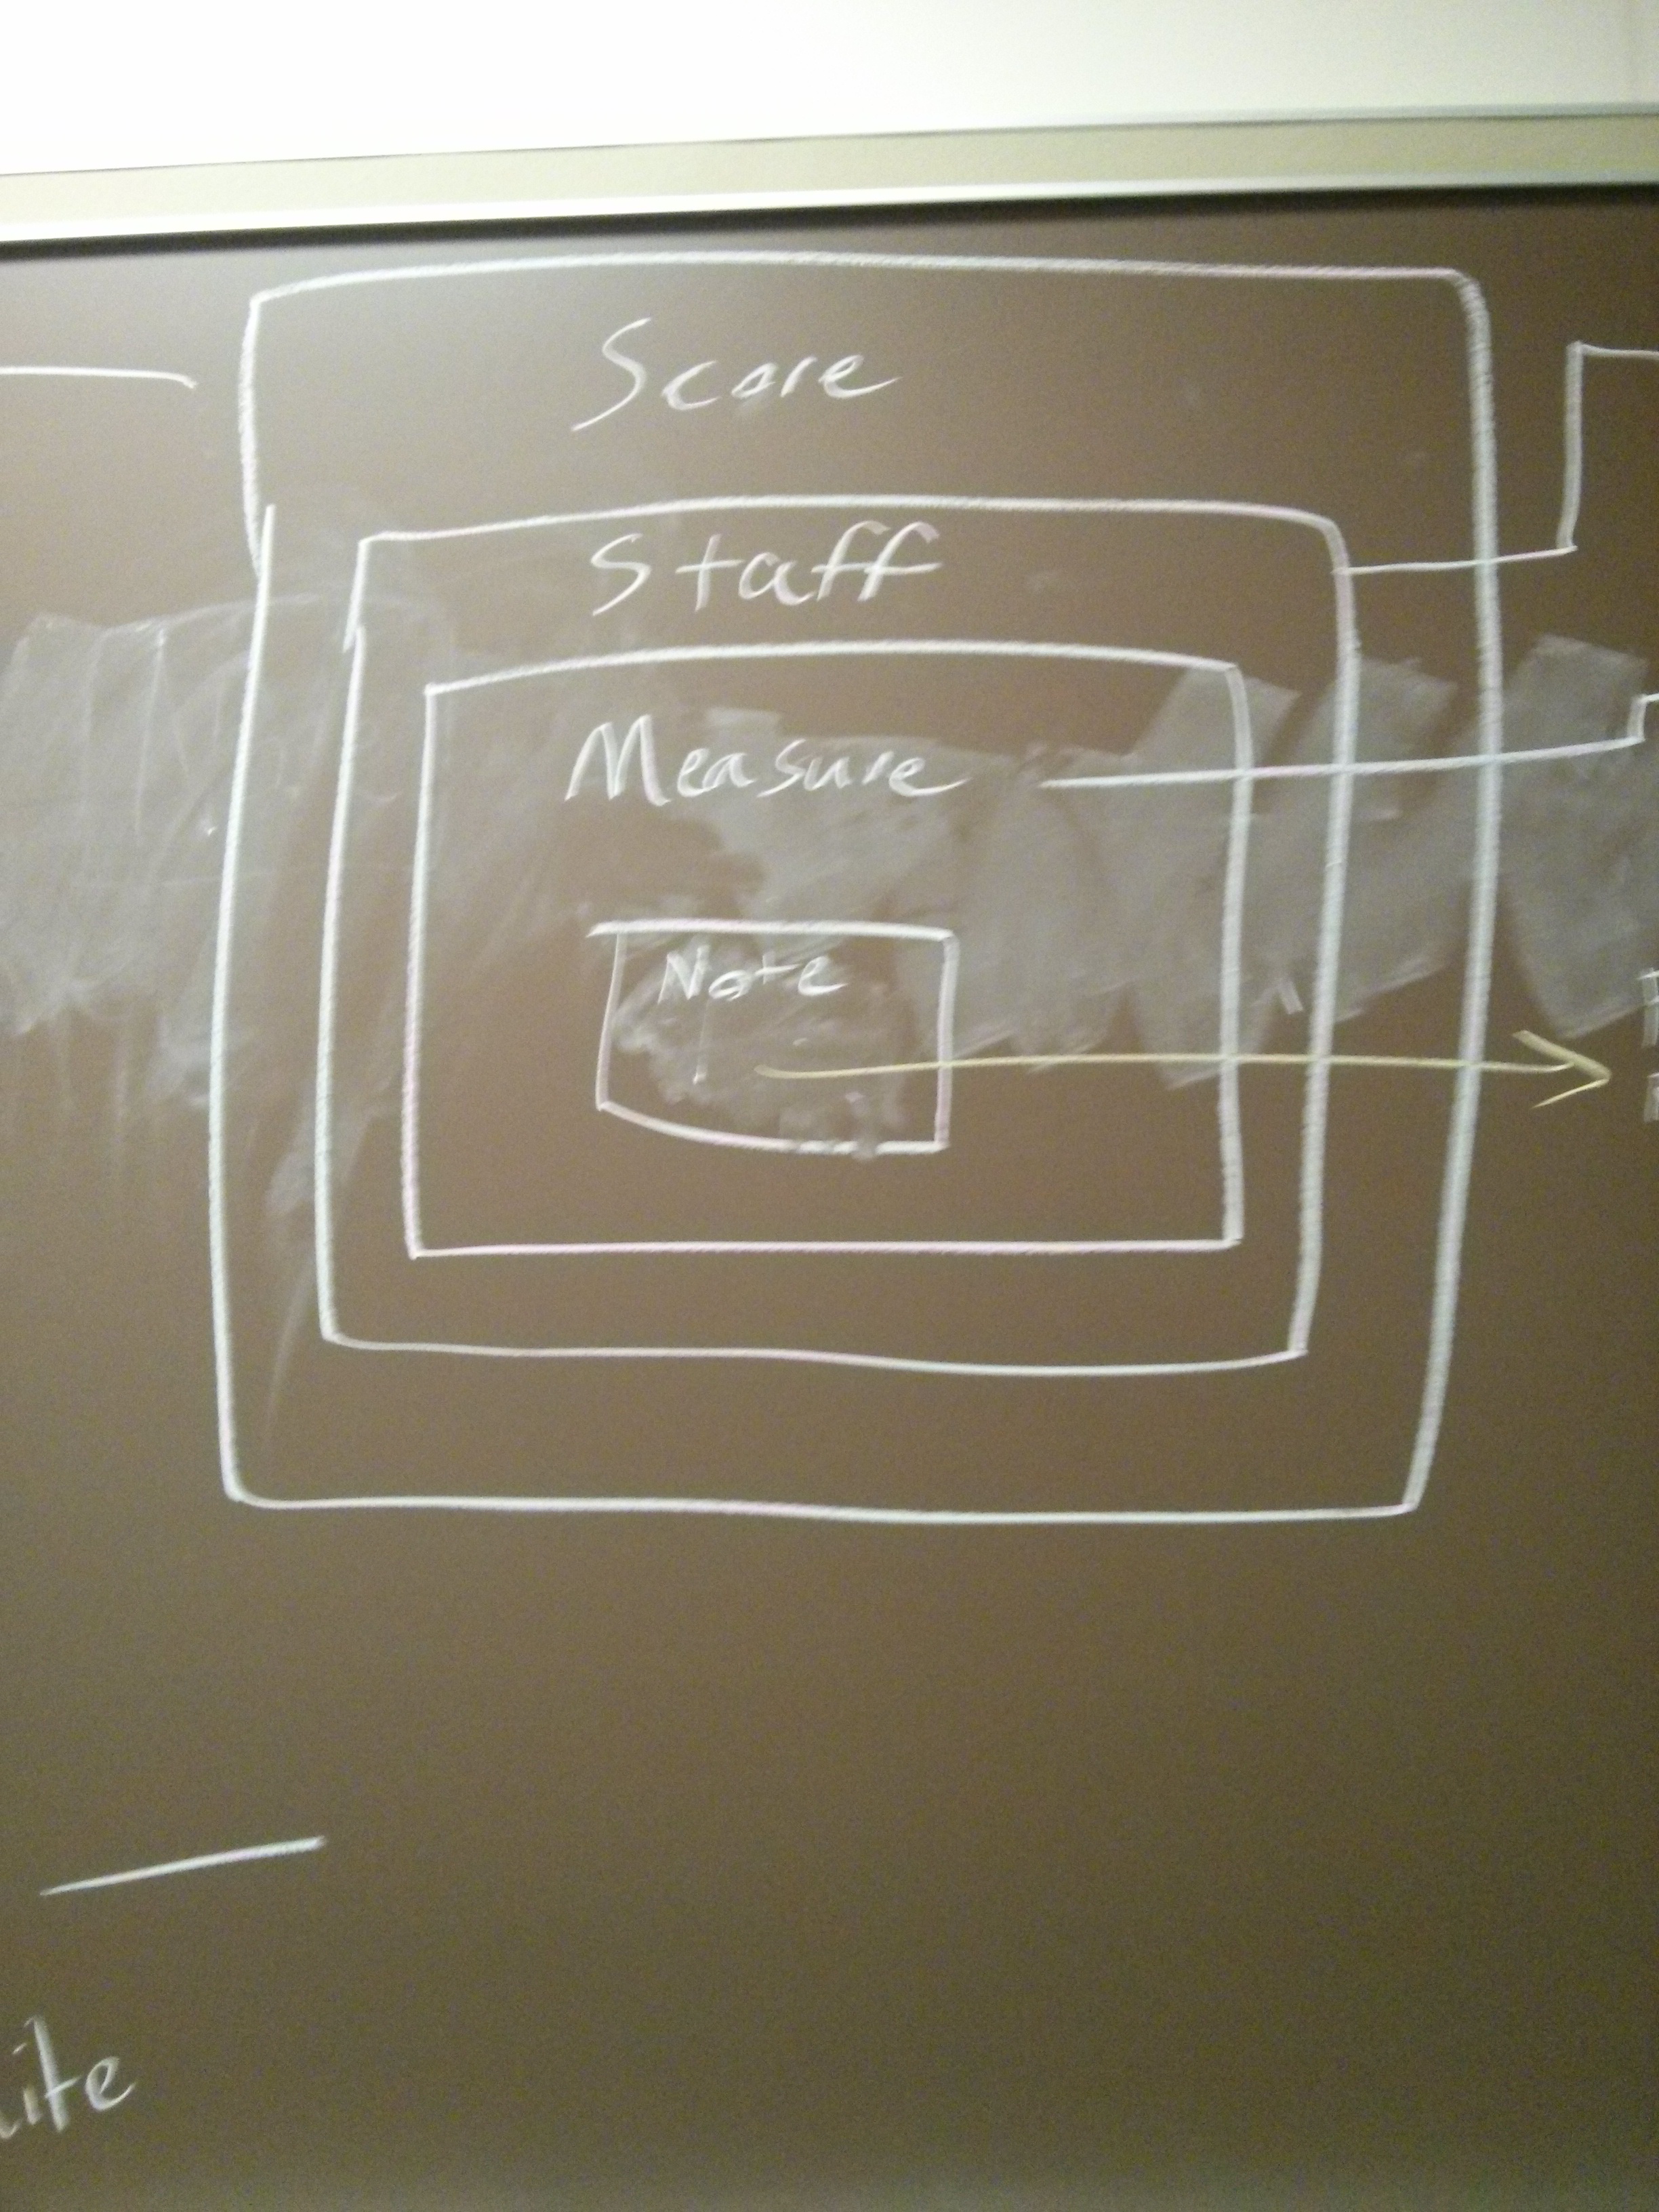 Score
Staff
Measure
Note